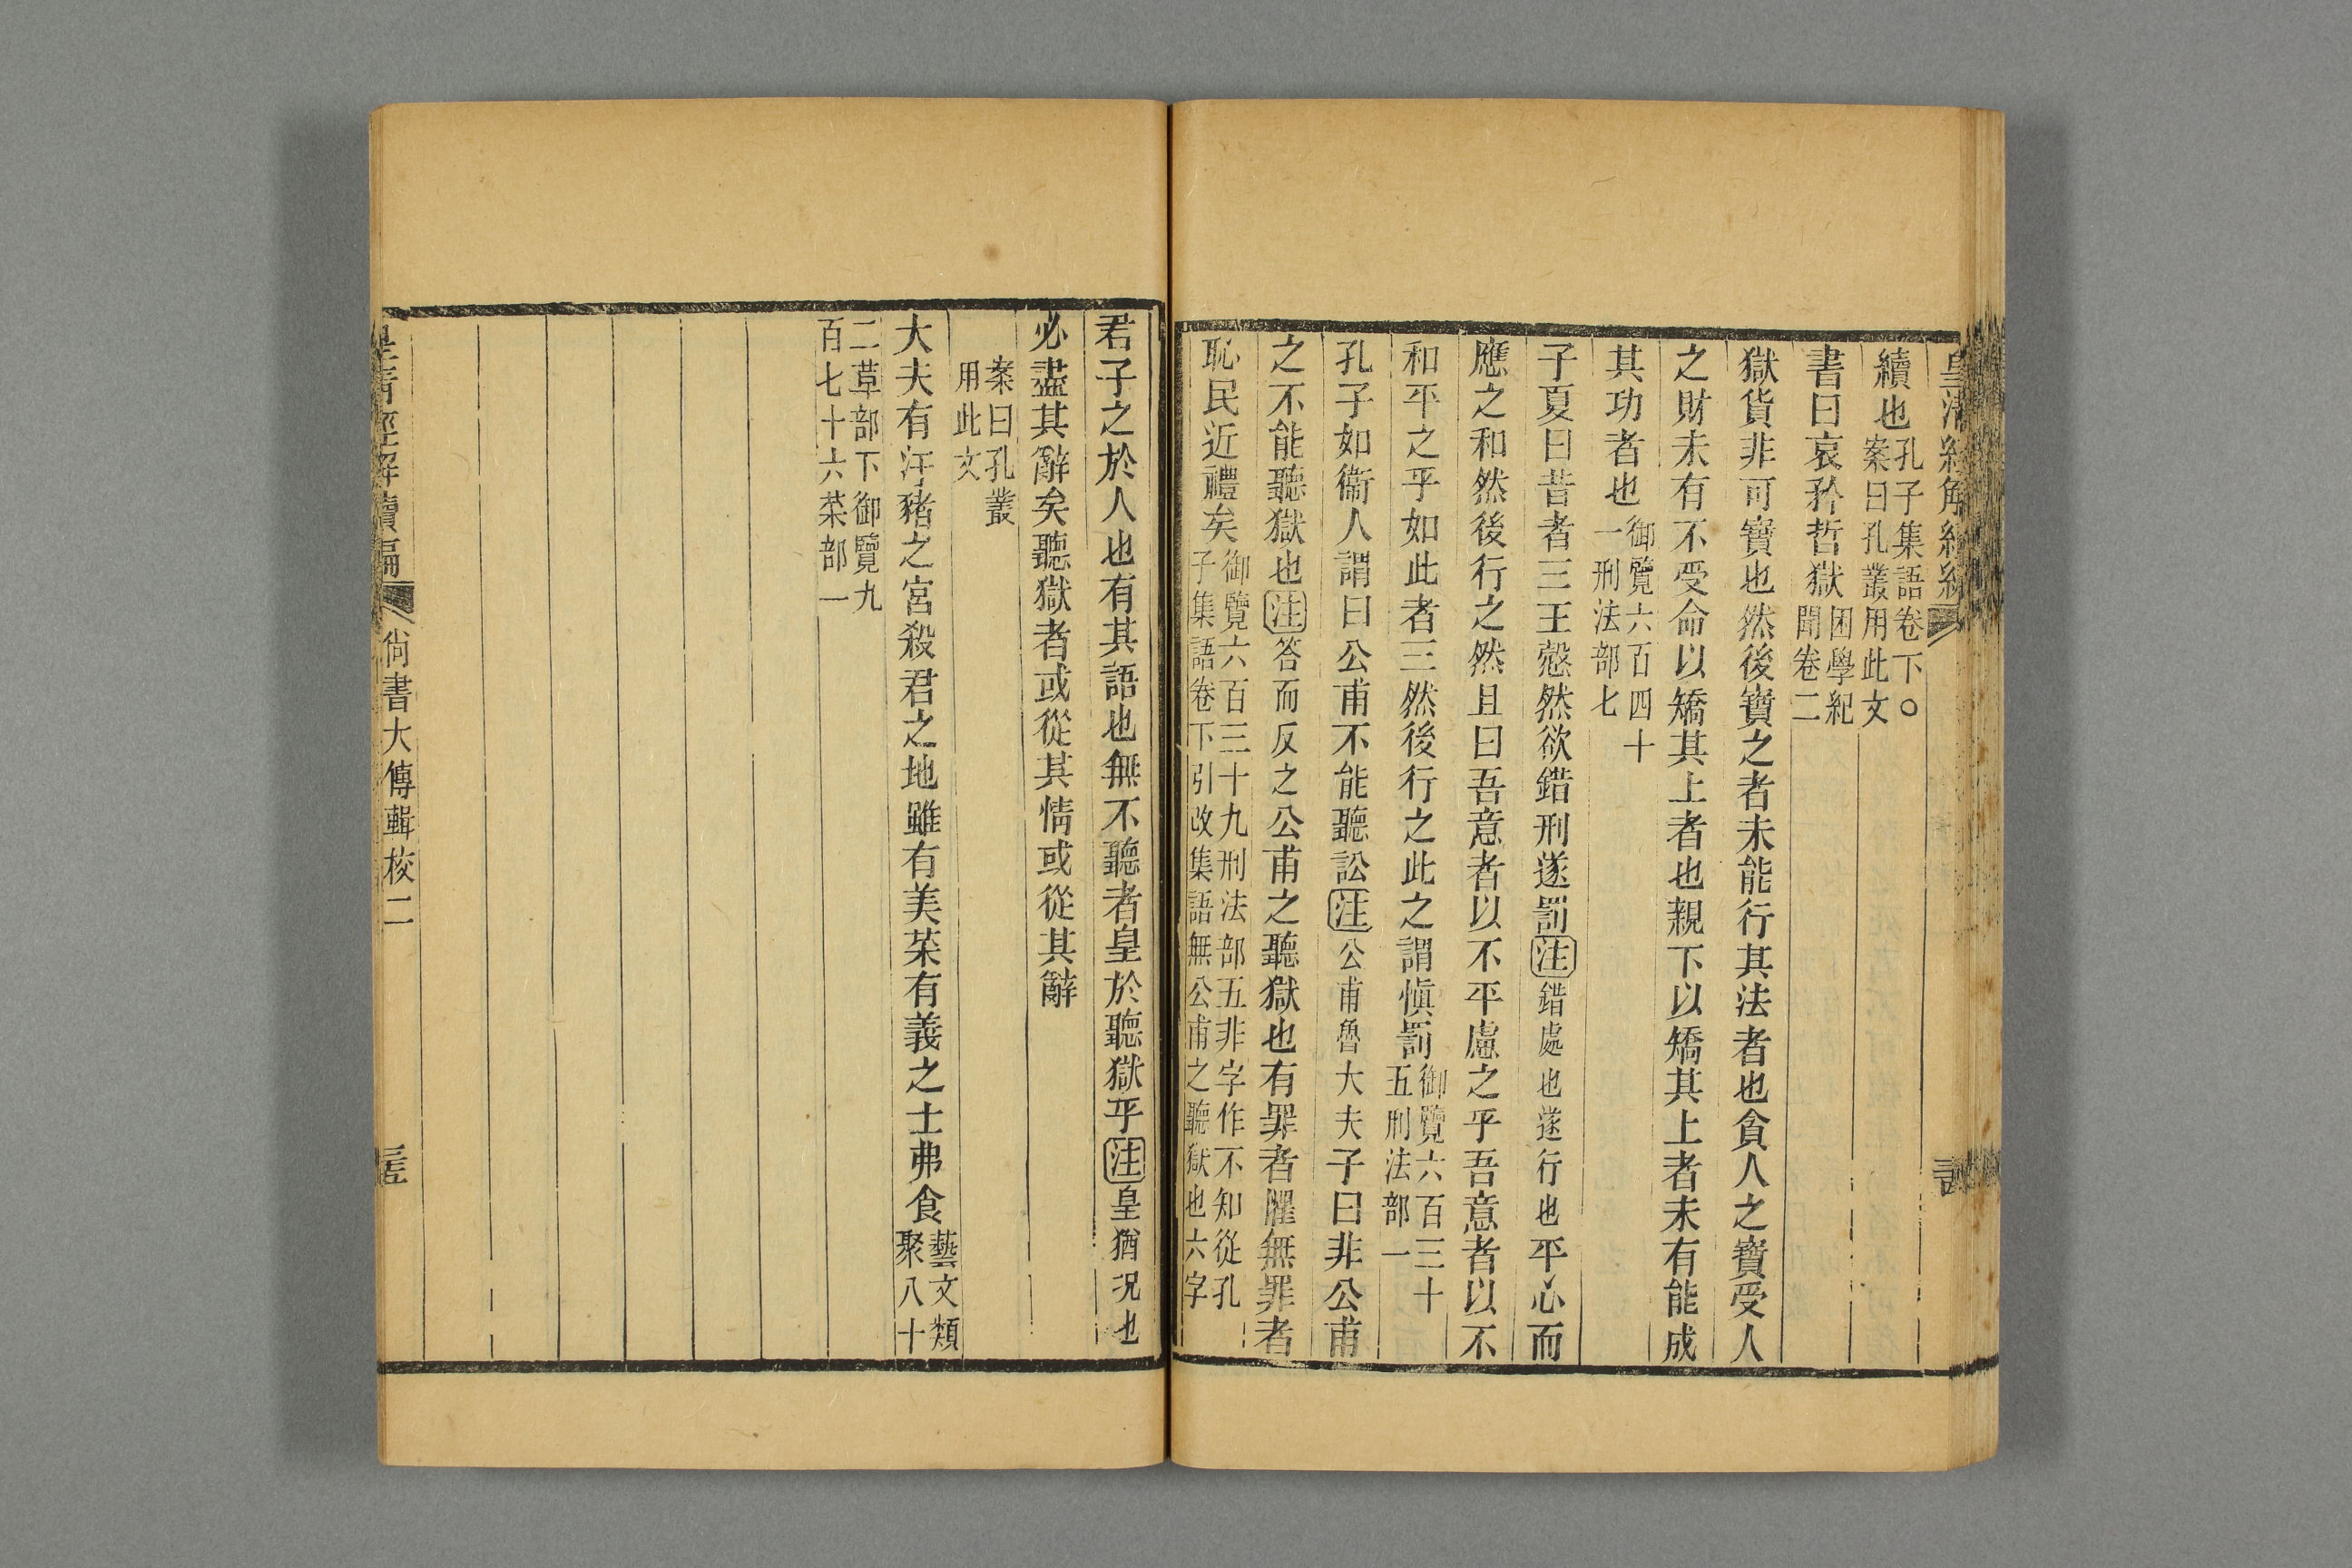 續也孔子集語卷下○案曰孔叢用此文
書曰哀矜哲獄困學紀聞卷二
獄貨非可寶也然後寶之者未能行其法者也貪人之寶受人
之財未有不受命以矯其上者也親下以矯其上者未有能成
其功者也御覽六百四十一刑法部七
子夏曰昔者三王愨然欲錯刑遂罰注錯處也遂行也平心而
應之和然後行之然且曰吾意者以不平慮之乎吾意者以不
和平之乎如此者三然後行之此之謂慎罰御覽六百三十五刑法部一
孔子如衞人謂曰公甫不能聽訟注公甫魯大夫子曰非公甫
之不能聽獄也注答而反之公甫之聽獄也有罪者懼無罪者
恥民近禮矣御覽六百三十九刑法部五非字作不知從孔子集語卷下引改集語無公甫之聽獄也六字
君子之於人也有其語也無不聽者皇於聽獄乎注皇猶況也
必盡其辭矣聽獄者或從其情或從其辭
案曰孔叢用此文
大夫有汙豬之宮殺君之地雖有美菜有義之士弗食藝文類聚八十
二草部下御覽九百七十六菜部一
皇清經解續編
尙書大傳輯校二